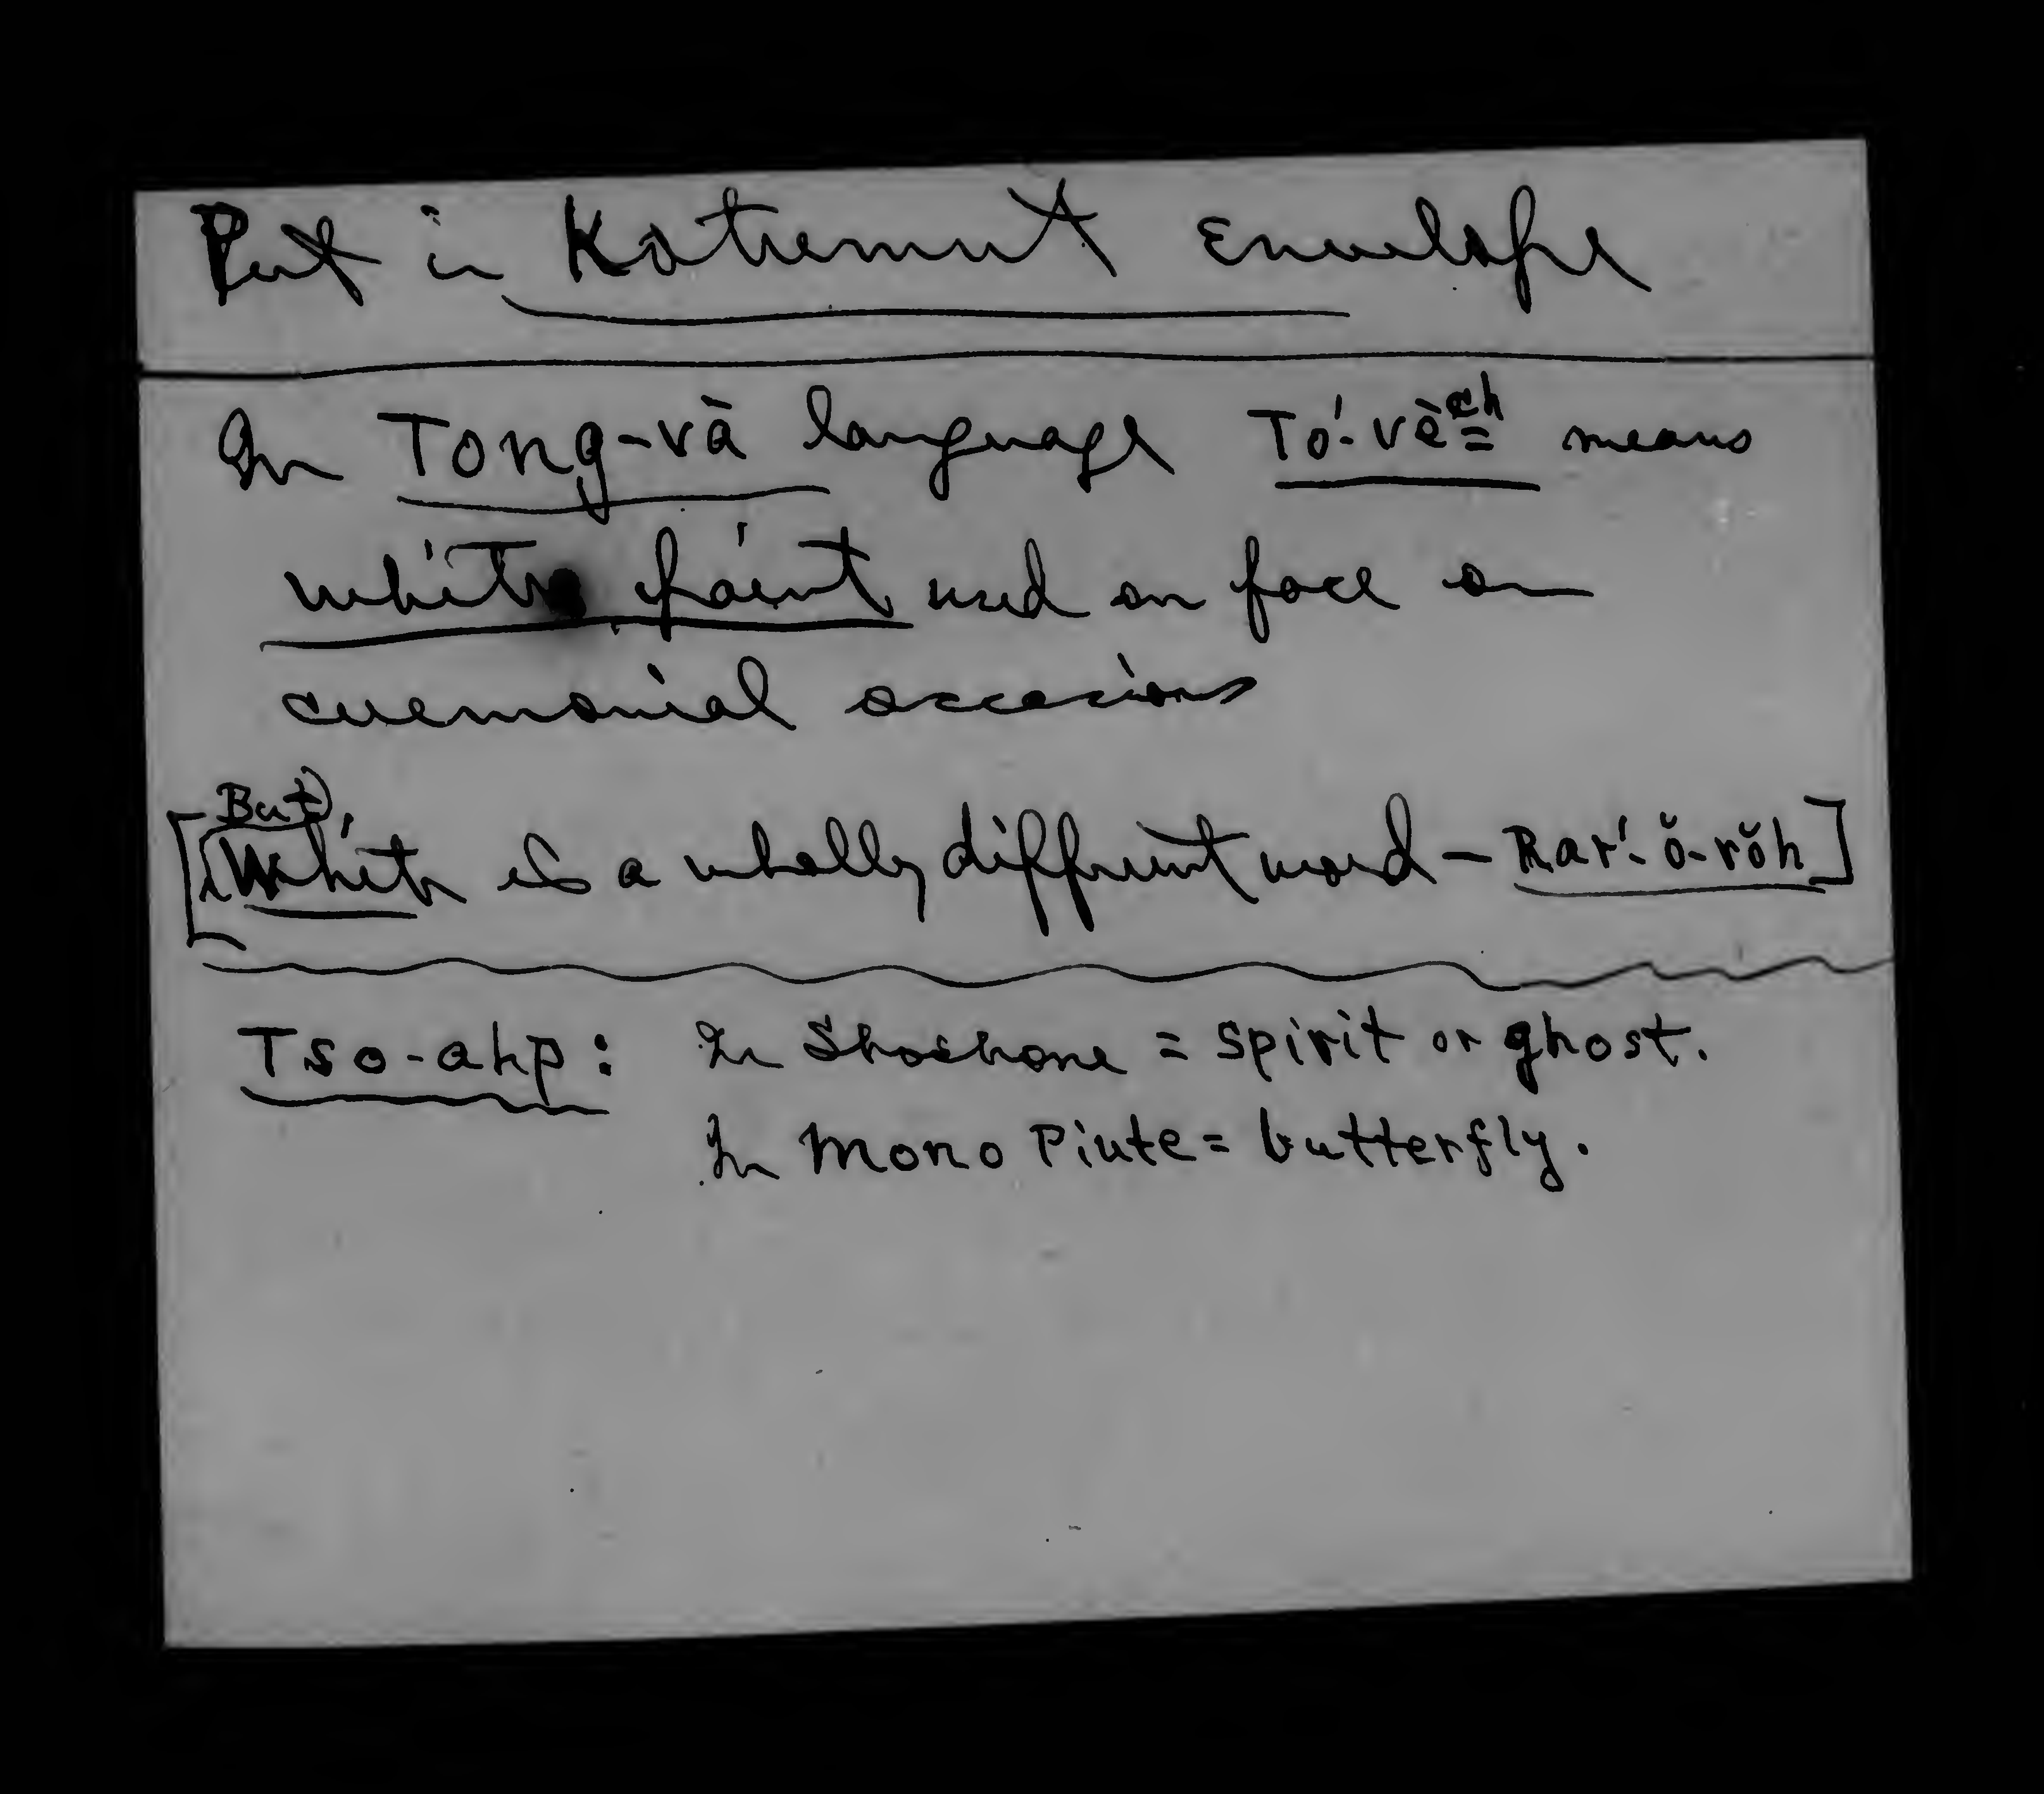 Put in Katremut Envelope
In Tong-và language To´-vè ᶜʰ means
white paint used on face on
ceremonial occasions
[But, White is a wholly different word — Rar´-ŏ-rŏh]
Tso-ahp: In Shoshone = spirit or ghost.
In Mono Piute = butterfly.